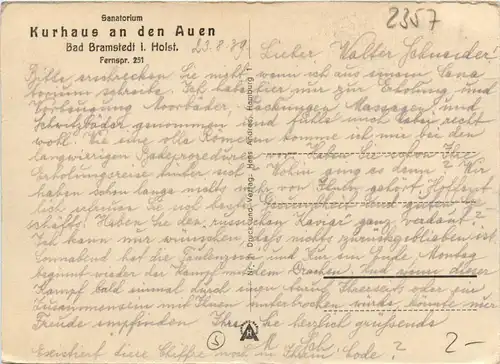 Sanatorium
Kurhaus an den Auen
Bad Bramstedt i. Holst.
Fernspr. 251
23.8.39.
2357
Lieber Walter Schneider!
Bitte erschrecken Sie nicht, wenn ich aus einem Sana
torium schreibe. Ich habe hier nur zur Erholung und
Vorbeugung Moorbäder, Packungen Massagen und
Schwitzbäder genommen und fühle mich dabei recht
wohl. Wie eine olle Römerin komme ich mir bei den
langwierigen Badeprozeduren vor. Haben Sie schon Ihre
Erholungsreise hinter sich? Wohin ging es denn? Wir
haben schon lange nichts mehr von Ihnen gehört. Hoffent
lich erfreuen Sie sich bester Gesundheit und guten
Geschäfts! Haben Sie den russischen Kaviar ganz verdaut?
Ich kann nur wünschen, dass nichts zurückgeblieben ist.
Sonnabend hat die Faulenzerei und Kur ein Ende, Montag
beginnt wieder der Kampf mit dem Drachen. Und wenn dieser
Kampf bald einmal durch einen Anruf Ihrerseits oder ein
Zusammensein mit Ihnen unterbrochen würde, könnte nur
Freude empfinden Ihre Sie herzlich grüssende
M. Sch.
Existiert diese Chiffre noch in Ihrem Code?
Druck und Verlag: Hans Andres, Hamburg
5
2-